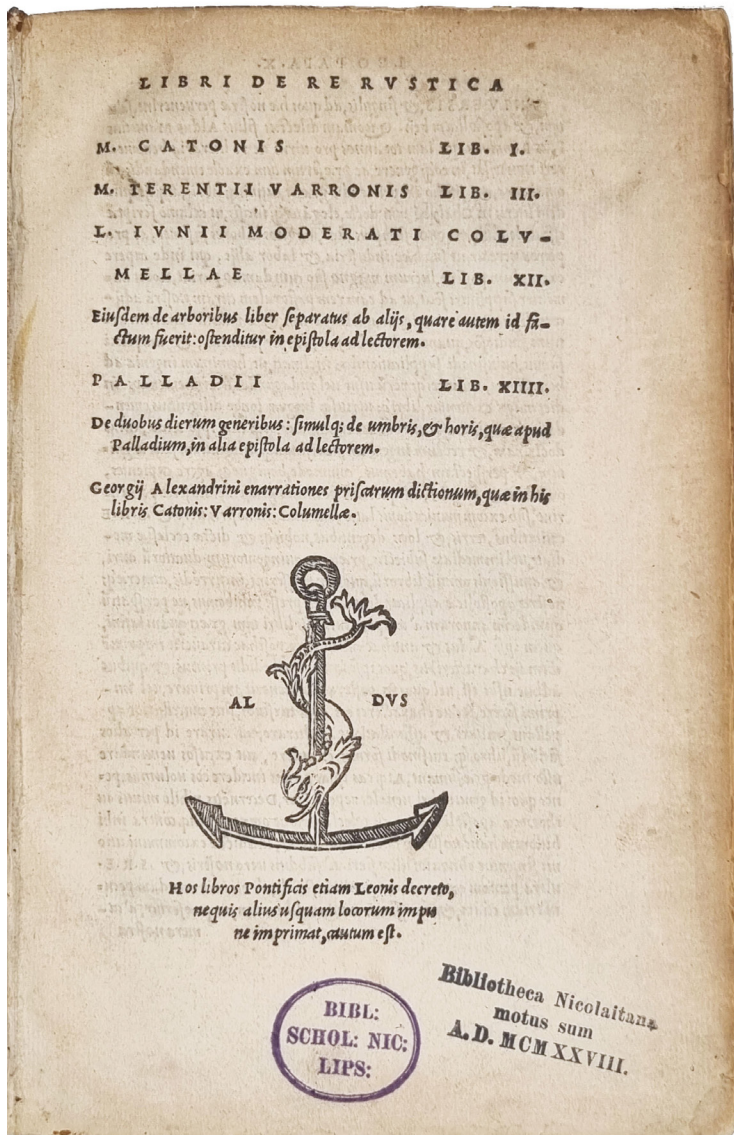 LIBRI DE RE RVSTICA
M. CATONIS LIB. I.
M. TERENTII VARRONIS LIB. III.
L. IVNII MODERATI COLV-
MELLAE LIB. XII.
Eiusdem de arboribus liber separatus ab alijs, quare autem id fa-
ctum fuerit: ostenditur in epistola ad lectorem.
PALLADII LIB. XIIII.
De duobus dierum generibus: simulq; de umbris, & horis, quæ apud
Palladium, in alia epistola ad lectorem.
Georgij Alexandrini enarrationes priscarum dictionum, quæ in his
libris Catonis: Varronis: Columellæ.
AL DVS
Hos libros Pontificis etiam Leonis decreto,
nequis alius usquam locorum impu
ne imprimat, cautum est.
BIBL:
SCHOL: NIC:
LIPS:
Bibliotheca Nicolaitana
motus sum
A.D. MCMXXVIII.